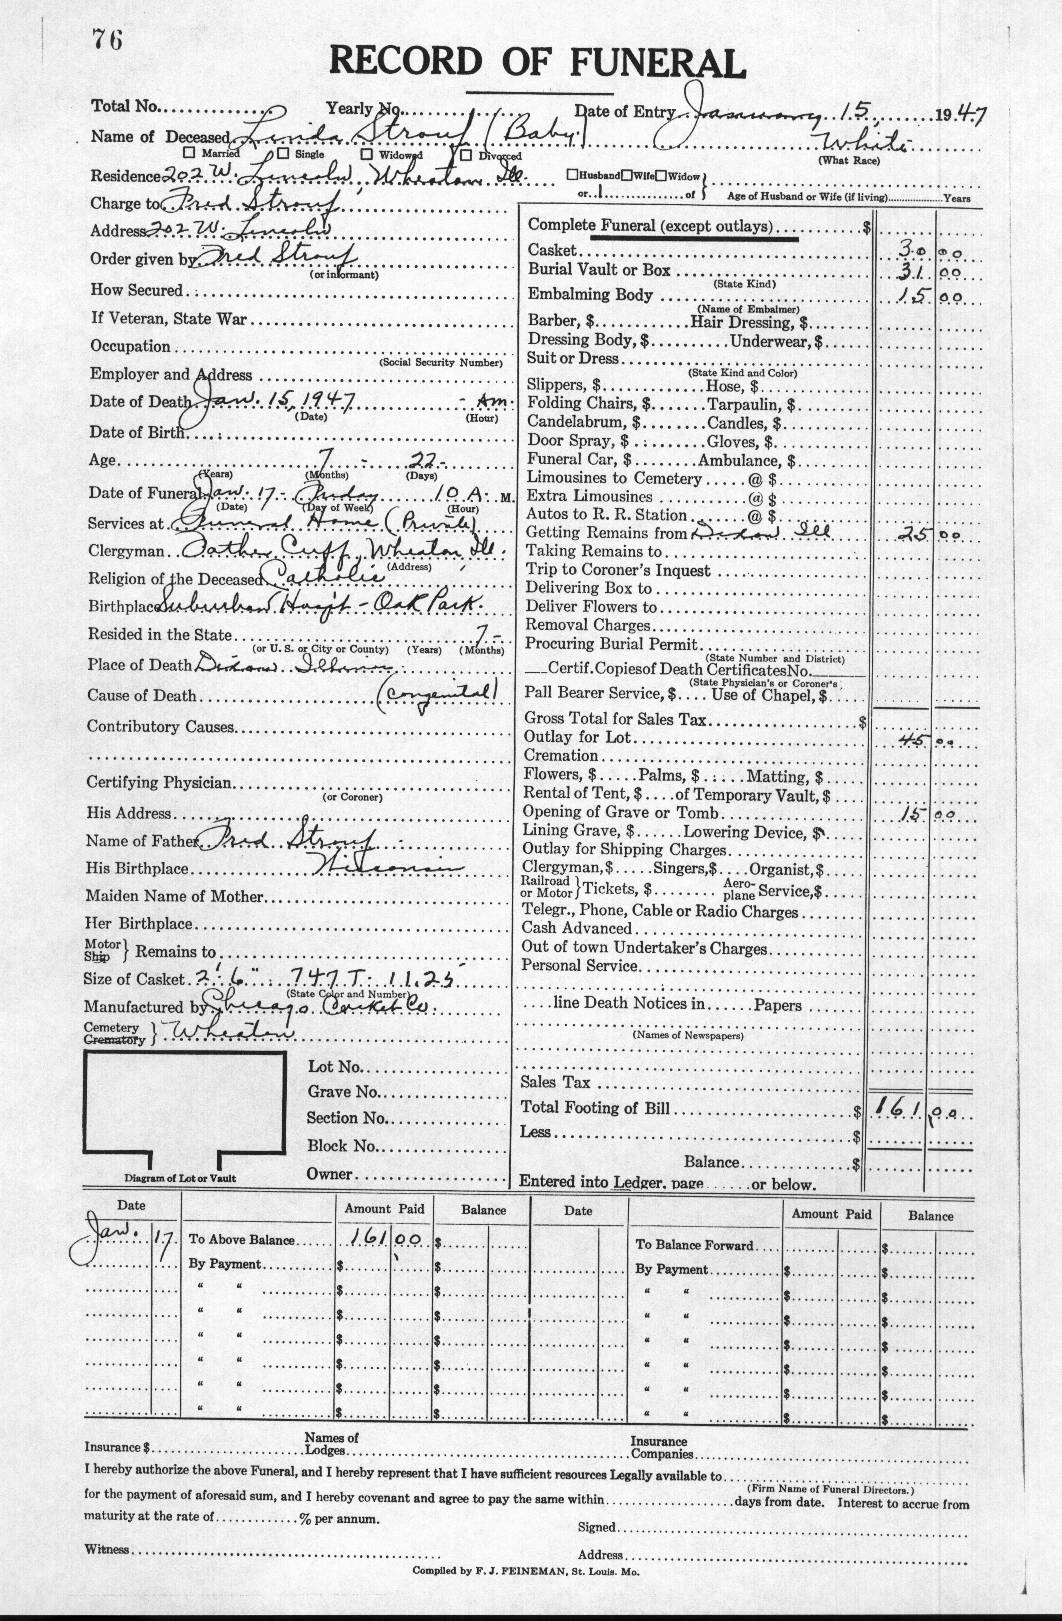 76
RECORD OF FUNERAL
Total No. Yearly No. Date of Entry January 15, 1947
Name of Deceased Linda Strouf (Baby) White
☐ Married ☐ Single ☐ Widowed ☐ Divorced (What Race)
Residence 202 W. Lincoln, Wheaton Ill. ☐Husband☐Wife☐Widow}
or of } Age of Husband or Wife (if living) Years
Charge to Fred Strouf
Address 202 W. Lincoln
Order given by Fred Strouf
(or informant)
How Secured
If Veteran, State War
Occupation
(Social Security Number)
Employer and Address
Date of Death Jan. 15, 1947 - Am.
(Date) (Hour)
Date of Birth
Age 7 - 22-
(Years) (Months) (Days)
Date of Funeral Jan. 17- Friday 10 A. M.
(Date) (Day of Week) (Hour)
Services at Funeral Home (Private)
Clergyman Father Cuff, Wheaton Ill.
(Address)
Religion of the Deceased Catholic
Birthplace Suburban Hosp't - Oak Park.
Resided in the State 7-
(or U. S. or City or County) (Years) (Months)
Place of Death Dixon Illinois
Cause of Death (Congenital)
Contributory Causes
Certifying Physician
(or Coroner)
His Address
Name of Father Fred Strouf
His Birthplace Wisconsin
Maiden Name of Mother
Her Birthplace
Motor
Ship } Remains to
Size of Casket 2' 6" 747 T. 11.25
(State Color and Number)
Manufactured by Chicago Casket Co.
Cemetery
Crematory } Wheaton
Lot No.
Grave No.
Section No.
Block No.
Owner
Diagram of Lot or Vault
Complete Funeral (except outlays) $
Casket 30 00
Burial Vault or Box 31 00
(State Kind)
Embalming Body 15 00
(Name of Embalmer)
Barber, $ Hair Dressing, $
Dressing Body, $ Underwear, $
Suit or Dress
(State Kind and Color)
Slippers, $ Hose, $
Folding Chairs, $ Tarpaulin, $
Candelabrum, $ Candles, $
Door Spray, $ Gloves, $
Funeral Car, $ Ambulance, $
Limousines to Cemetery @ $
Extra Limousines @ $
Autos to R. R. Station @ $
Getting Remains from Dixon Ill 25 00
Taking Remains to
Trip to Coroner's Inquest
Delivering Box to
Deliver Flowers to
Removal Charges
Procuring Burial Permit
(State Number and District)
Certif. Copies of Death Certificates No.
(State Physician's or Coroner's
Pall Bearer Service, $ Use of Chapel, $
Gross Total for Sales Tax $
Outlay for Lot 45 00
Cremation
Flowers, $ Palms, $ Matting, $
Rental of Tent, $ of Temporary Vault, $
Opening of Grave or Tomb 15 00
Lining Grave, $ Lowering Device, $
Outlay for Shipping Charges
Clergyman, $ Singers, $ Organist, $
Railroad
or Motor } Tickets, $ Aero-
plane Service, $
Telegr., Phone, Cable or Radio Charges
Cash Advanced
Out of town Undertaker's Charges
Personal Service
line Death Notices in Papers
(Names of Newspapers)
Sales Tax
Total Footing of Bill $ 161 00
Less $
Balance $
Entered into Ledger, page or below.
Date Amount Paid Balance Date Amount Paid Balance
Jan. 17 To Above Balance 161 00 $ To Balance Forward $
By Payment $ $ By Payment $ $
" " $ $ " " $ $
" " $ $ " " $ $
" " $ $ " " $ $
" " $ $ " " $ $
" " $ $ " " $ $
" " $ $ " " $ $
Insurance $ Names of
Lodges Insurance
Companies
I hereby authorize the above Funeral, and I hereby represent that I have sufficient resources Legally available to
(Firm Name of Funeral Directors.)
for the payment of aforesaid sum, and I hereby covenant and agree to pay the same within days from date. Interest to accrue from
maturity at the rate of % per annum.
Signed
Witness Address
Compiled by F. J. FEINEMAN, St. Louis. Mo.